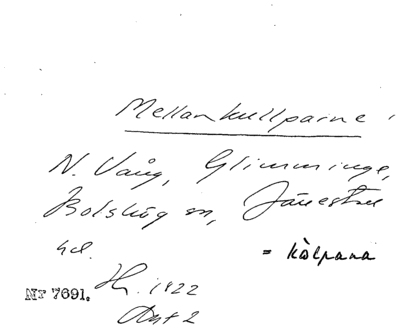 Mellankullparne
N. Vång, Glimminge,
Bolshög m,
hd.
= kàlpana
Nr 7691. Hr. 1822
Akt 2